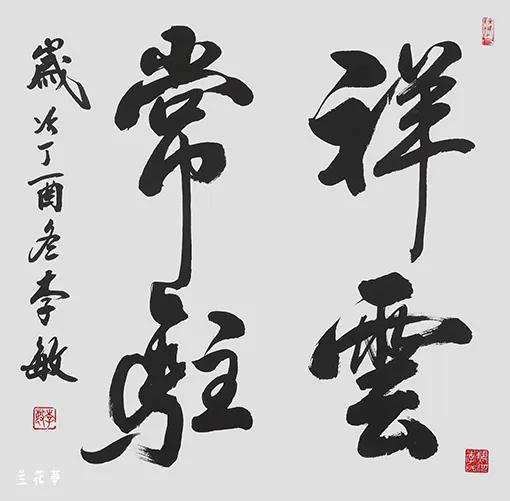 祥雲
常駐
歲次丁酉冬李敏
兰花亭